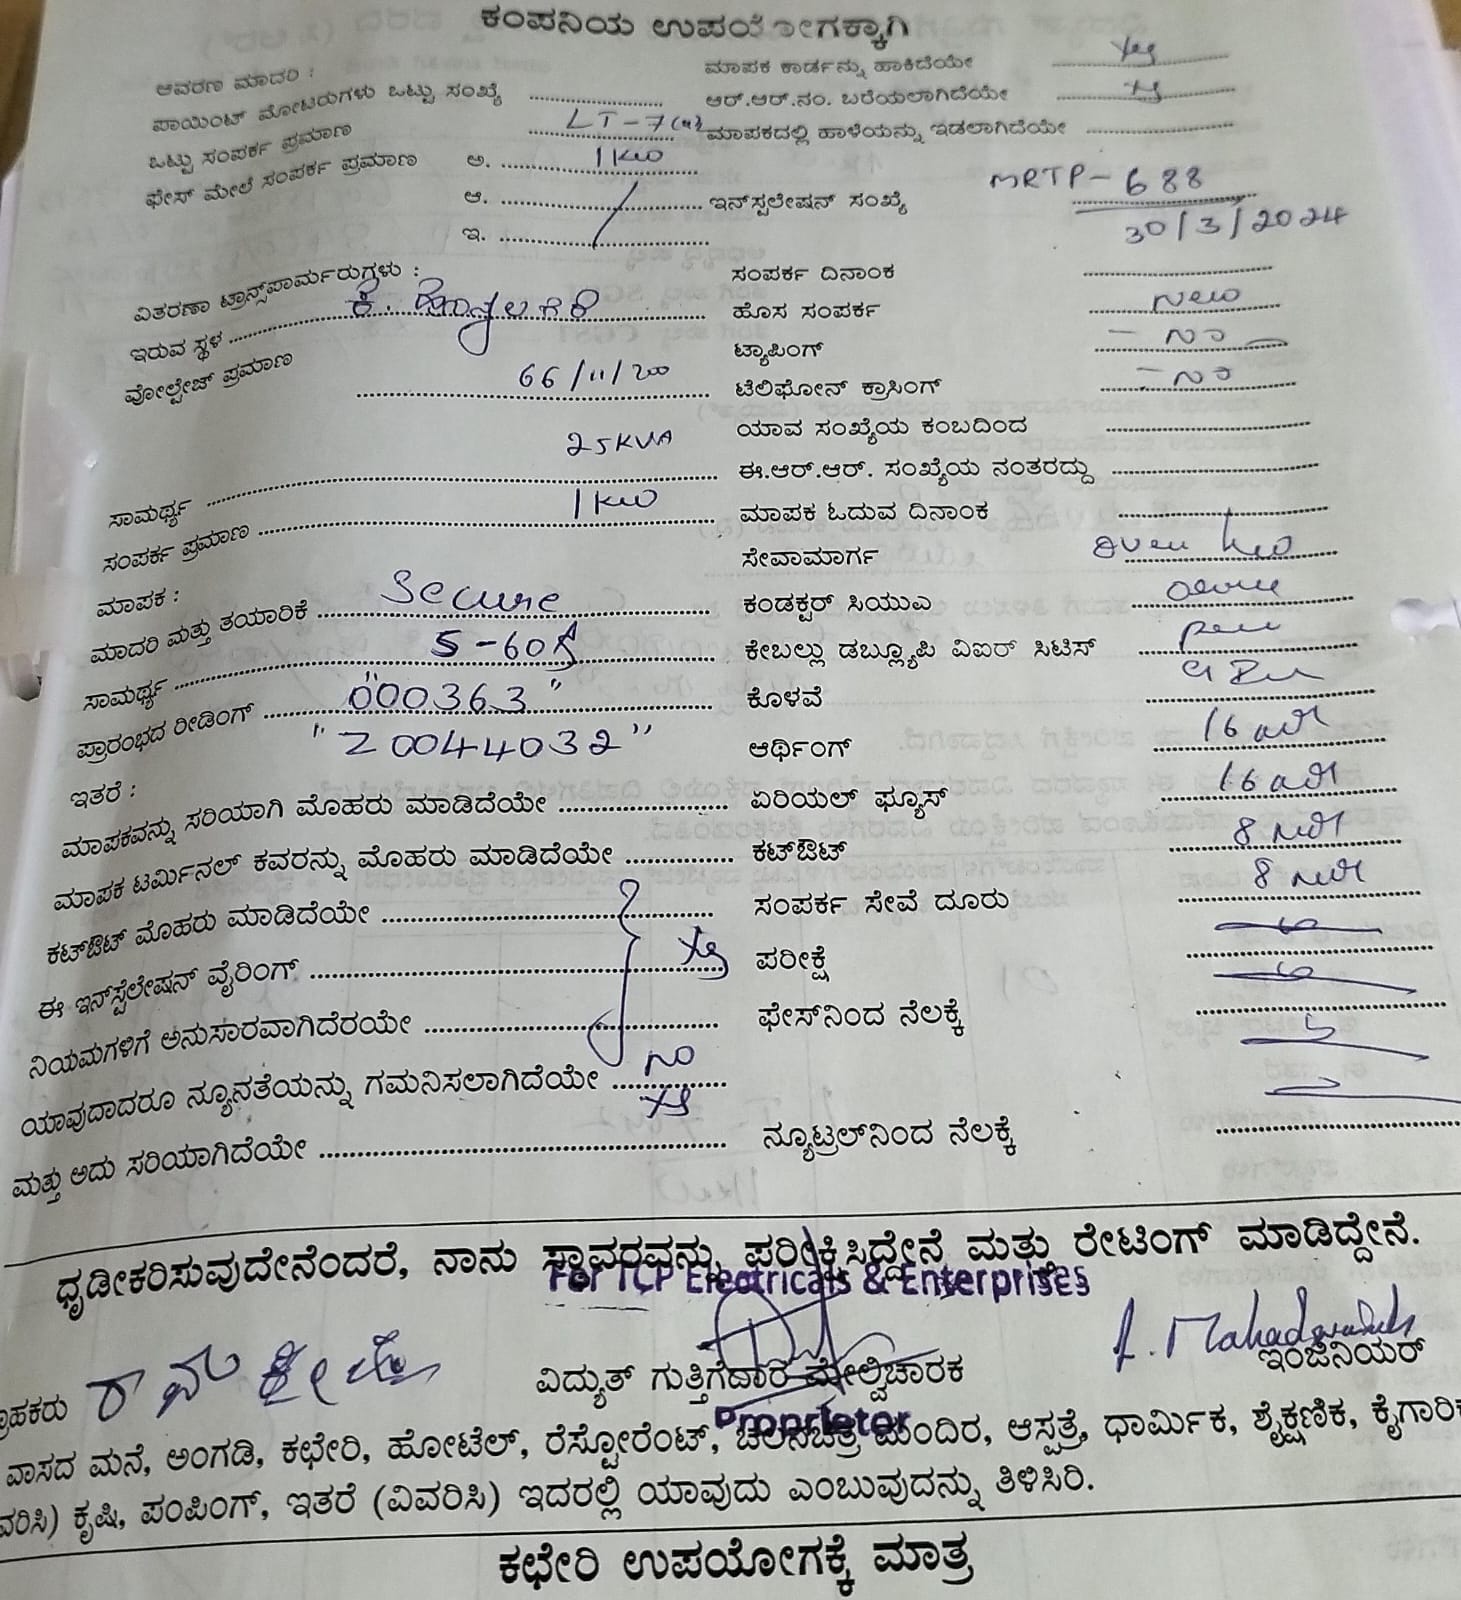 ಕಂಪನಿಯ ಉಪಯೋಗಕ್ಕಾಗಿ
ಆವರಣ ಮಾದರಿ :
ಪಾಯಿಂಟ್ ಮೋಟರುಗಳು ಒಟ್ಟು ಸಂಖ್ಯೆ
ಒಟ್ಟು ಸಂಪರ್ಕ ಪ್ರಮಾಣ LT-7(a)
ಫೇಸ್ ಮೇಲೆ ಸಂಪರ್ಕ ಪ್ರಮಾಣ ಅ. 1 KW
ಆ.
ಇ.
ವಿತರಣಾ ಟ್ರಾನ್ಸ್‌ಪಾರ್ಮರುಗಳು :
ಇರುವ ಸ್ಥಳ ಕೆ.
ವೋಲ್ಟೇಜ್ ಪ್ರಮಾಣ 66/11/200
25KVA
ಸಾಮರ್ಥ್ಯ
ಸಂಪರ್ಕ ಪ್ರಮಾಣ 1 KW
ಮಾಪಕ :
ಮಾದರಿ ಮತ್ತು ತಯಾರಿಕೆ Secure
ಸಾಮರ್ಥ್ಯ 5-60A
ಪ್ರಾರಂಭದ ರೀಡಿಂಗ್ "000363"
"20044032"
ಇತರೆ :
ಮಾಪಕವನ್ನು ಸರಿಯಾಗಿ ಮೊಹರು ಮಾಡಿದೆಯೇ
ಮಾಪಕ ಟರ್ಮಿನಲ್ ಕವರನ್ನು ಮೊಹರು ಮಾಡಿದೆಯೇ
ಕಟ್‌ಔಟ್ ಮೊಹರು ಮಾಡಿದೆಯೇ
ಈ ಇನ್‌ಸ್ಪೆಲೇಷನ್ ವೈರಿಂಗ್ Yes
ನಿಯಮಗಳಿಗೆ ಅನುಸಾರವಾಗಿದೆರಯೇ
ಯಾವುದಾದರೂ ನ್ಯೂನತೆಯನ್ನು ಗಮನಿಸಲಾಗಿದೆಯೇ NO
ಮತ್ತು ಅದು ಸರಿಯಾಗಿದೆಯೇ Yes
ಮಾಪಕ ಕಾರ್ಡನ್ನು ಹಾಕಿದೆಯೇ Yes
ಆರ್.ಆರ್.ನಂ. ಬರೆಯಲಾಗಿದೆಯೇ Yes
ಮಾಪಕದಲ್ಲಿ ಹಾಳೆಯನ್ನು ಇಡಲಾಗಿದೆಯೇ
ಇನ್‌ಸ್ಪಲೇಷನ್ ಸಂಖ್ಯೆ MRTP-688
30/3/2024
ಸಂಪರ್ಕ ದಿನಾಂಕ
ಹೊಸ ಸಂಪರ್ಕ New
ಟ್ಯಾಪಿಂಗ್ - No
ಟೆಲಿಫೋನ್ ಕ್ರಾಸಿಂಗ್ - No
ಯಾವ ಸಂಖ್ಯೆಯ ಕಂಬದಿಂದ
ಈ.ಆರ್.ಆರ್. ಸಂಖ್ಯೆಯ ನಂತರದ್ದು
ಮಾಪಕ ಓದುವ ದಿನಾಂಕ
ಸೇವಾಮಾರ್ಗ
ಕಂಡಕ್ಟರ್ ಸಿಯುಎ
ಕೇಬಲ್ಲು ಡಬ್ಲ್ಯೂಪಿ ವಿಐರ್ ಸಿಟಿಸ್
ಕೊಳವೆ
ಆರ್ಥಿಂಗ್ 16
ಏರಿಯಲ್ ಫ್ಯೂಸ್ 16
ಕಟ್‌ಔಟ್ 8
ಸಂಪರ್ಕ ಸೇವೆ ದೂರು 8
ಪರೀಕ್ಷೆ
ಫೇಸ್‌ನಿಂದ ನೆಲಕ್ಕೆ
ನ್ಯೂಟ್ರಲ್‌ನಿಂದ ನೆಲಕ್ಕೆ
ಧೃಡೀಕರಿಸುವುದೇನೆಂದರೆ, ನಾನು ಸ್ಥಾವರವನ್ನು ಪರೀಕ್ಷಿಸಿದ್ದೇನೆ ಮತ್ತು ರೇಟಿಂಗ್ ಮಾಡಿದ್ದೇನೆ.
For TCP Electricals & Enterprises
ವಿದ್ಯುತ್ ಗುತ್ತಿಗೆದಾರ ಮೇಲ್ವಿಚಾರಕ
ಇಂಜಿನಿಯರ್
Proprietor
ವಾಸದ ಮನೆ, ಅಂಗಡಿ, ಕಛೇರಿ, ಹೋಟೆಲ್, ರೆಸ್ಟೋರೆಂಟ್, ಚಲನಚಿತ್ರ ಮಂದಿರ, ಆಸ್ಪತ್ರೆ, ಧಾರ್ಮಿಕ, ಶೈಕ್ಷಣಿಕ, ಕೈಗಾರಿಕ
ವರಿಸಿ) ಕೃಷಿ, ಪಂಪಿಂಗ್, ಇತರೆ (ವಿವರಿಸಿ) ಇದರಲ್ಲಿ ಯಾವುದು ಎಂಬುವುದನ್ನು ತಿಳಿಸಿರಿ.
ಕಛೇರಿ ಉಪಯೋಗಕ್ಕೆ ಮಾತ್ರ